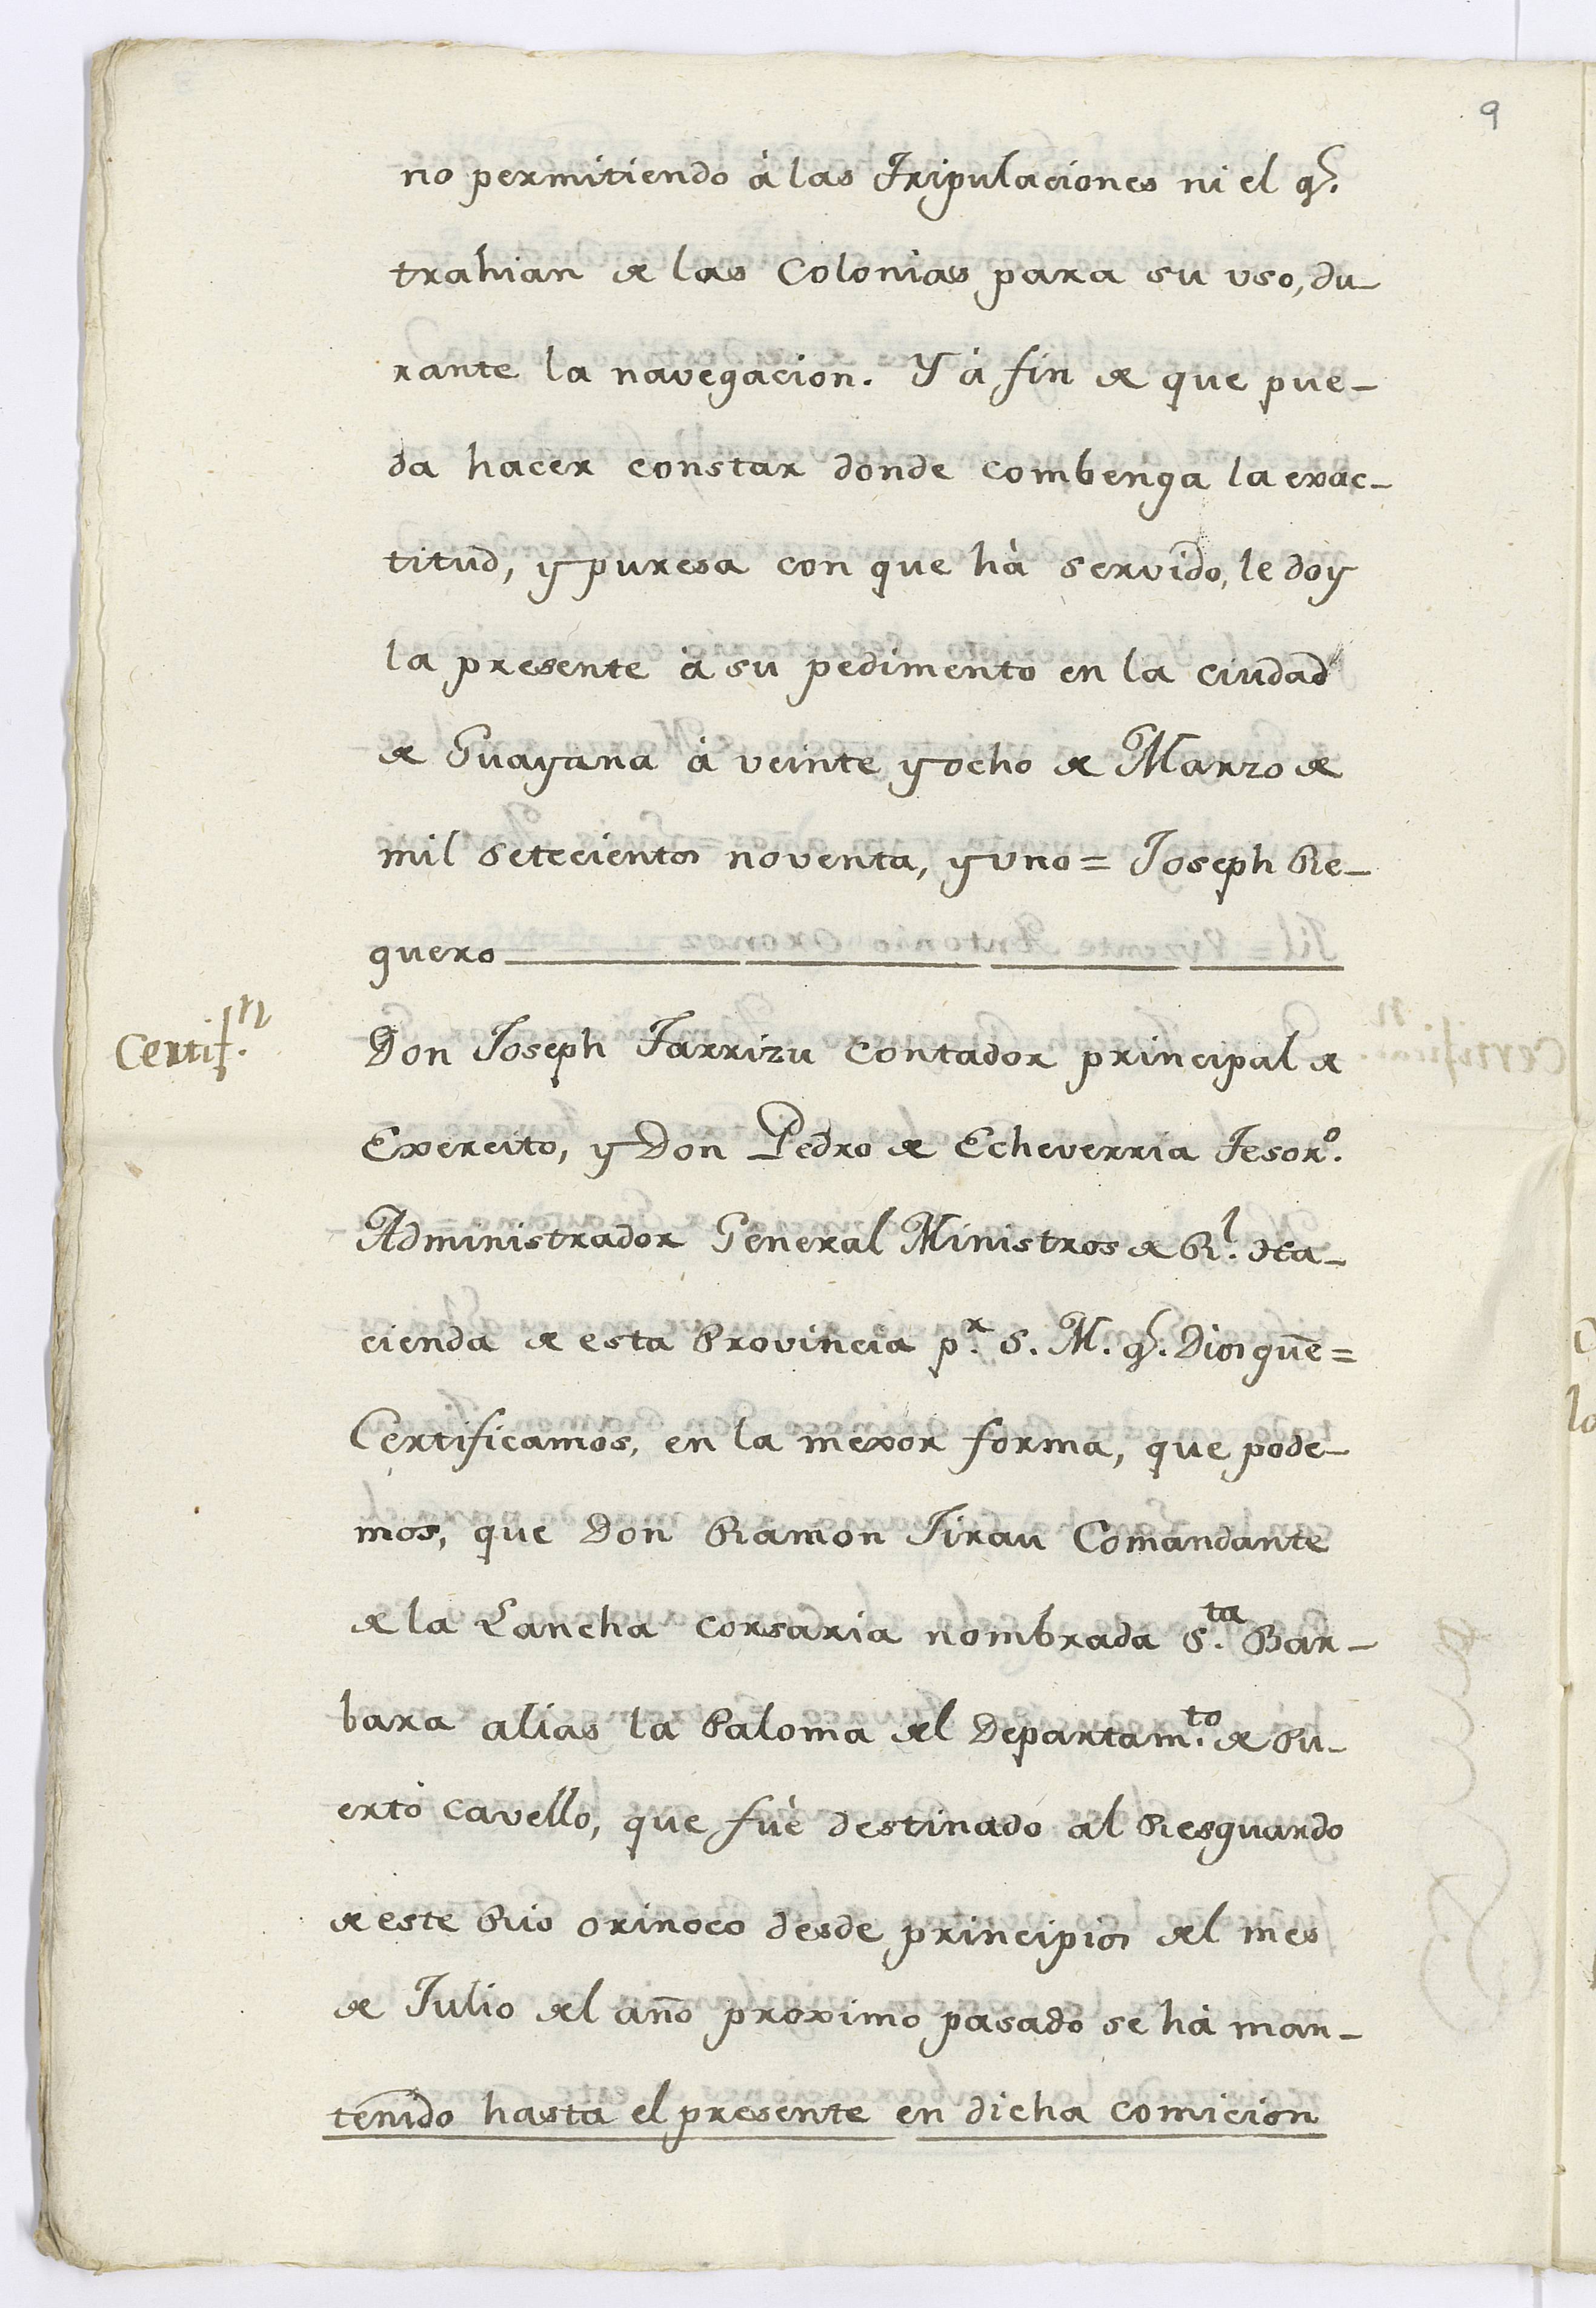 9
no permitiendo à las Tripulaciones ni el q.
trahian de las Colonias para su uso, du-
rante la navegacion. Y à fin de que pue-
da hacer constar donde combenga la exac-
titud, y puresa con que hà servido, le doy
la presente à su pedimento en la ciudad
de Guayana à veinte y ocho de Marzo de
mil setecientos noventa, y uno = Joseph Re-
guero
Certif.n
Don Joseph Tarrizu contador principal de
Exercito, y Don Pedro de Echeverria Tesor.o
Administrador General Ministros de R.l Ha-
cienda de esta Provincia p.r S. M. q. Dios gũe =
Certificamos, en la mexor forma, que pode-
mos, que Don Ramon Tirau Comandante
de la Lancha corsaria nombrada S.ta Bar-
bara alias la Paloma del Departam.to de Pu-
erto cavello, que fùe destinado al Resguardo
de este Rio orinoco desde principios del mes
de Julio del año proximo pasado se hà man-
tenido hasta el presente en dicha comicion